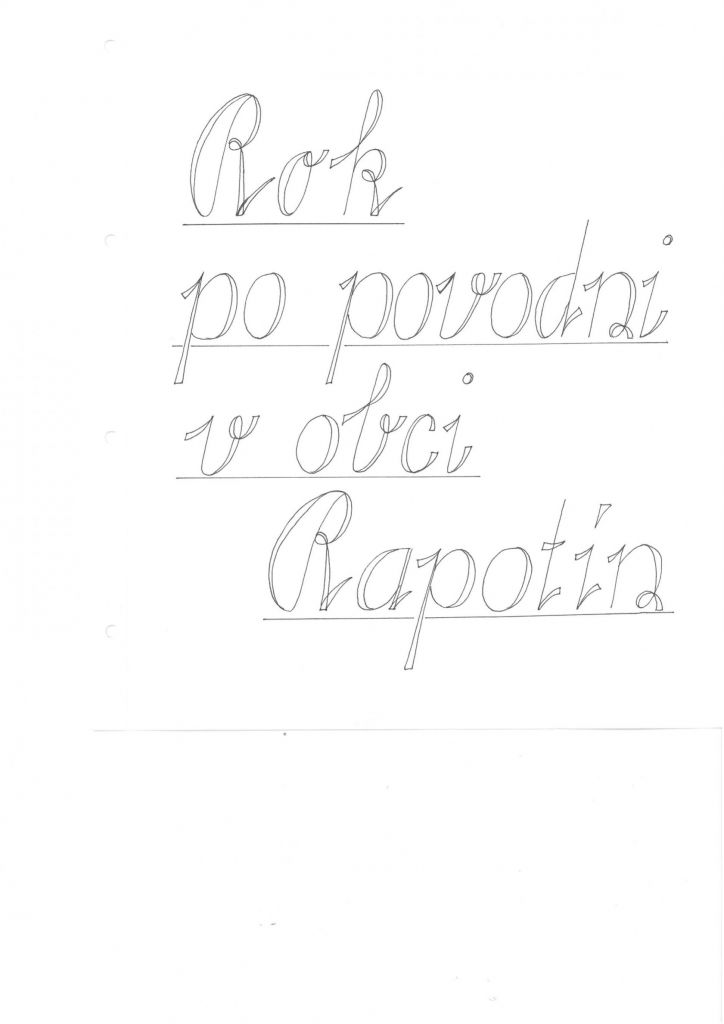 Rok
po povodni
v obci
Rapotín